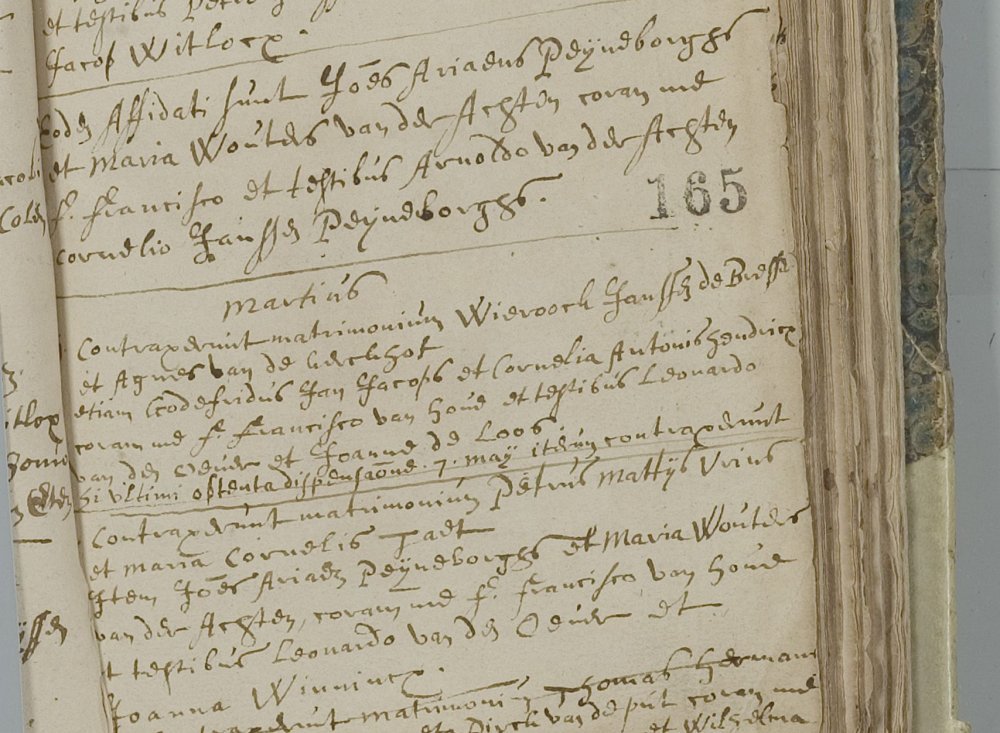 et testibus
Jacop Witlocx.
Eodem Affidati sunt Joes Ariaens Peyneborghs
et Maria Wouters van der Achten coram me
f. Francisco et testibus Arnoldo van der Achten
Cornelio Janssen Peyneborghs.
165
Martius
Contraxerunt matrimonium Wieroock Janssen de Bresser
et Agnes van de Kerckhof
etiam Godefridus Jan Jacops et Cornelia Antonis Hendricx
coram me f. Francisco van Hove et testibus Leonardo
van den Oever et Joanne de Loos.
hi ultimi ostenta dispensaone. 7. may iterum contraxerunt
Contraxerunt matrimonium Petrus Mattijs
et Maria Cornelis
Item Joes Ariaen Peyneborghs et Maria Wouters
van der Achten, coram me f. Francisco van Hove
et testibus Leonardo van den Oever et
Joanna Winnincx.
matrimonium Thomas Hermans
et Dirck van de put coram me
et Wilhelma